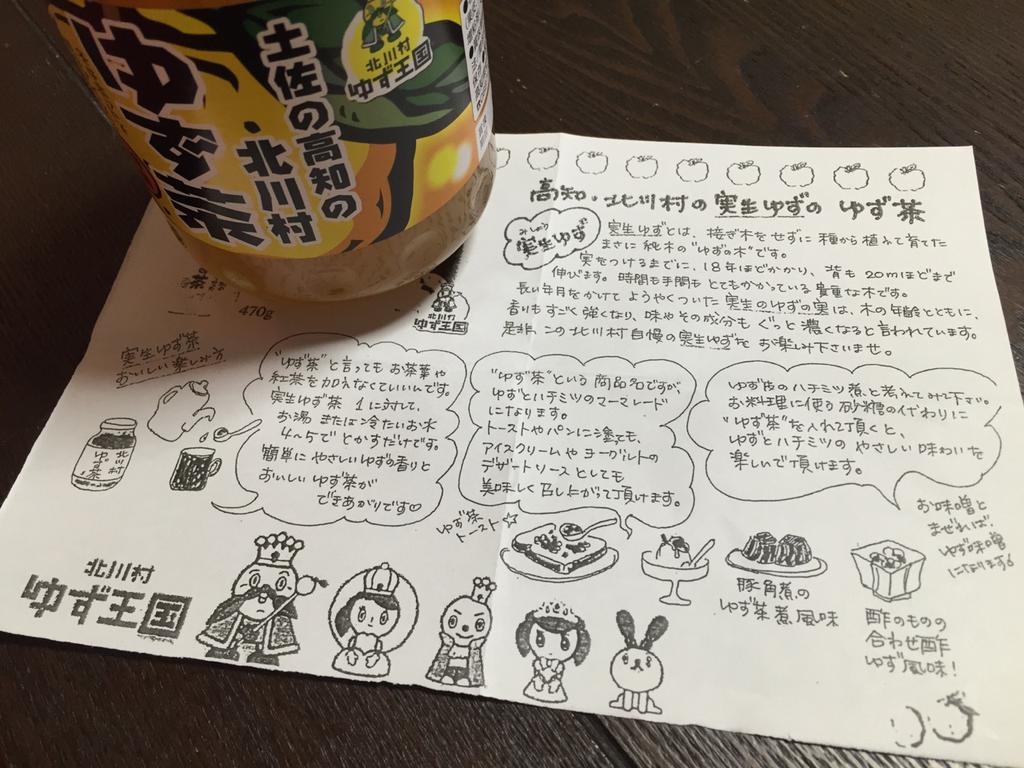 土佐の高知の
・北川村
ゆず茶
北川村
ゆず王国
高知・北川村の実生ゆずの ゆず茶
みしょう
実生ゆず
実生ゆずとは、接ぎ木をせずに種から植えて育てた
まさに純木の"ゆずの木"です。
実をつけるまでに、18年ほどかかり、背も20mほどまで
伸びます。時間も手間もとてもかかっている貴重な木です。
長い年月をかけてようやくついた実生のゆずの実は、木の年齢とともに、
香りもすごく強くなり、味やその成分もぐっと濃くなると言われています。
是非、この北川村自慢の実生ゆずをお楽しみ下さいませ。
470g
北川村
ゆず王国
実生ゆず茶
おいしい楽しみ方
北川村
ゆず茶
"ゆず茶"と言ってもお茶葉や
紅茶を加えなくていいんです。
実生ゆず茶 1に対して、
お湯または冷たいお水
4〜5でとかすだけです。
簡単にやさしいゆずの香りと
おいしいゆず茶が
できあがりです♡
"ゆず茶"という商品名ですが、
ゆずとハチミツのマーマレード
になります。
トーストやパンに塗っても、
アイスクリームやヨーグルトの
デザートソースとしても
美味しく召し上がって頂けます。
ゆず皮のハチミツ煮と考えてみて下さい。
お料理に使う砂糖の代わりに
"ゆず茶"を入れて頂くと、
ゆずとハチミツのやさしい味わいを
楽しいで頂けます。
ゆず茶
トースト☆
豚角煮の
ゆず茶煮風味
お味噌と
まぜれば、
ゆず味噌
になります!
酢のものの
合わせ酢
ゆず風味!
北川村
ゆず王国